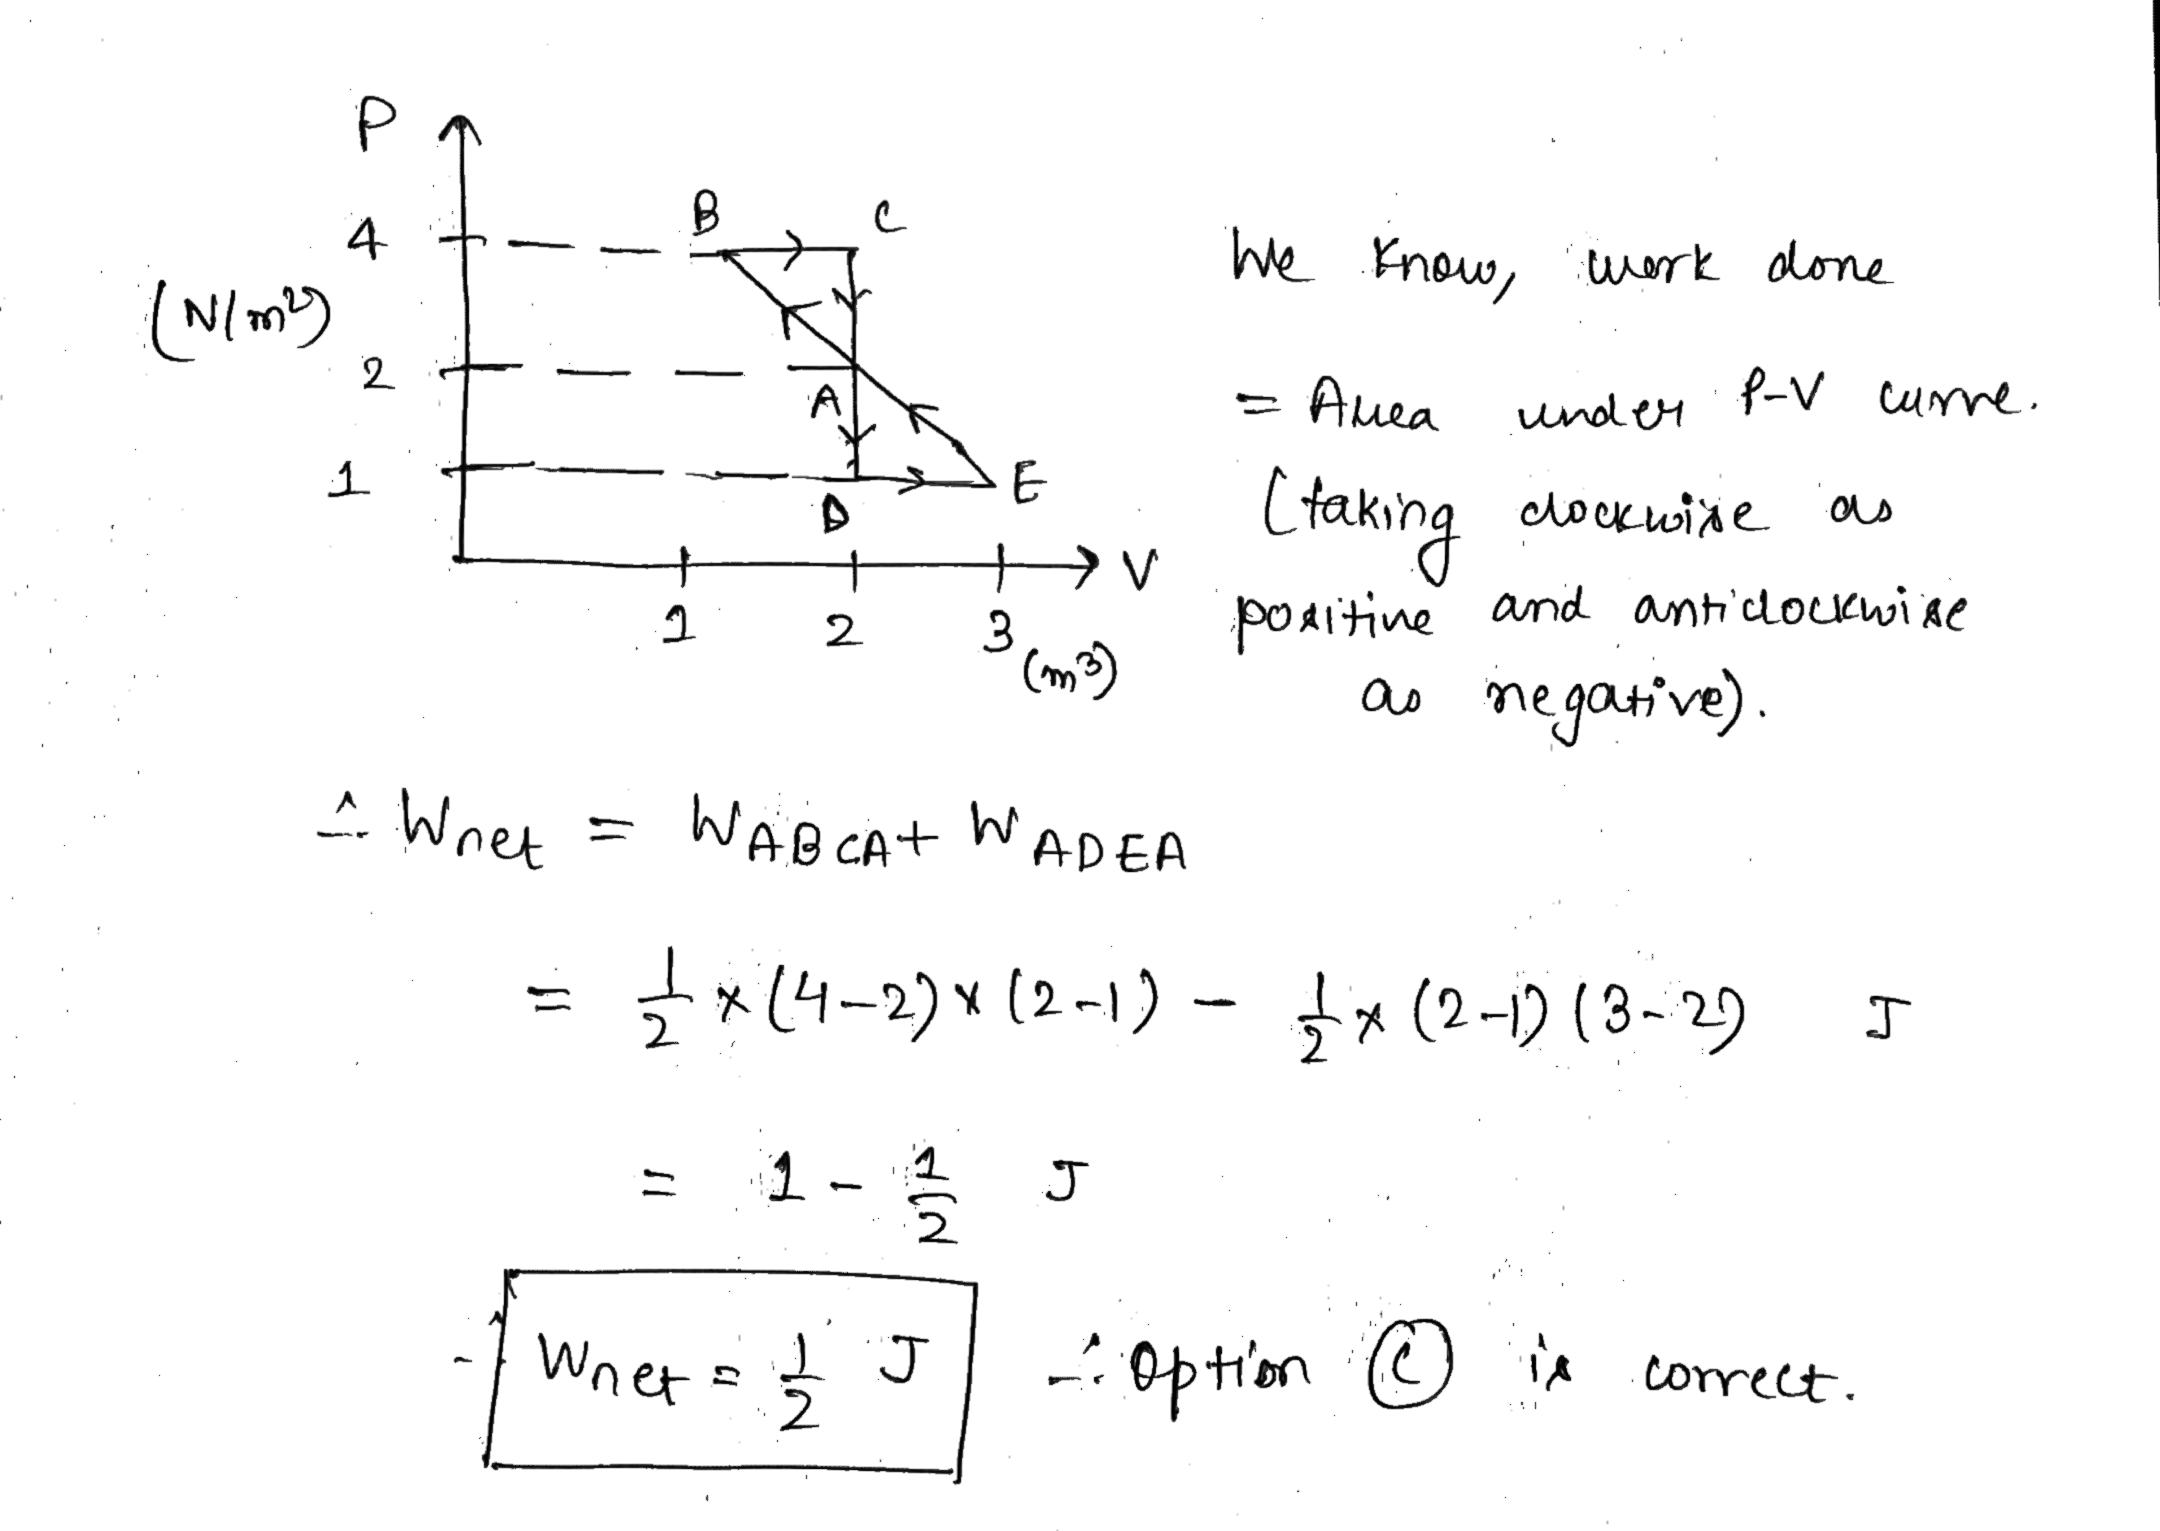 P
4
(N/m²)
2
1
B
C
A
D
E
V
1
2
3
(m³)
We know, work done
= Area under P-V curve.
(taking clockwise as
positive and anticlockwise
as negative).
∴ Wnet = WABCA + WADEA
= 1/2 × (4-2) × (2-1) - 1/2 × (2-1) (3-2) J
= 1 - 1/2 J
∴ Wnet = 1/2 J ∴ Option (C) is correct.